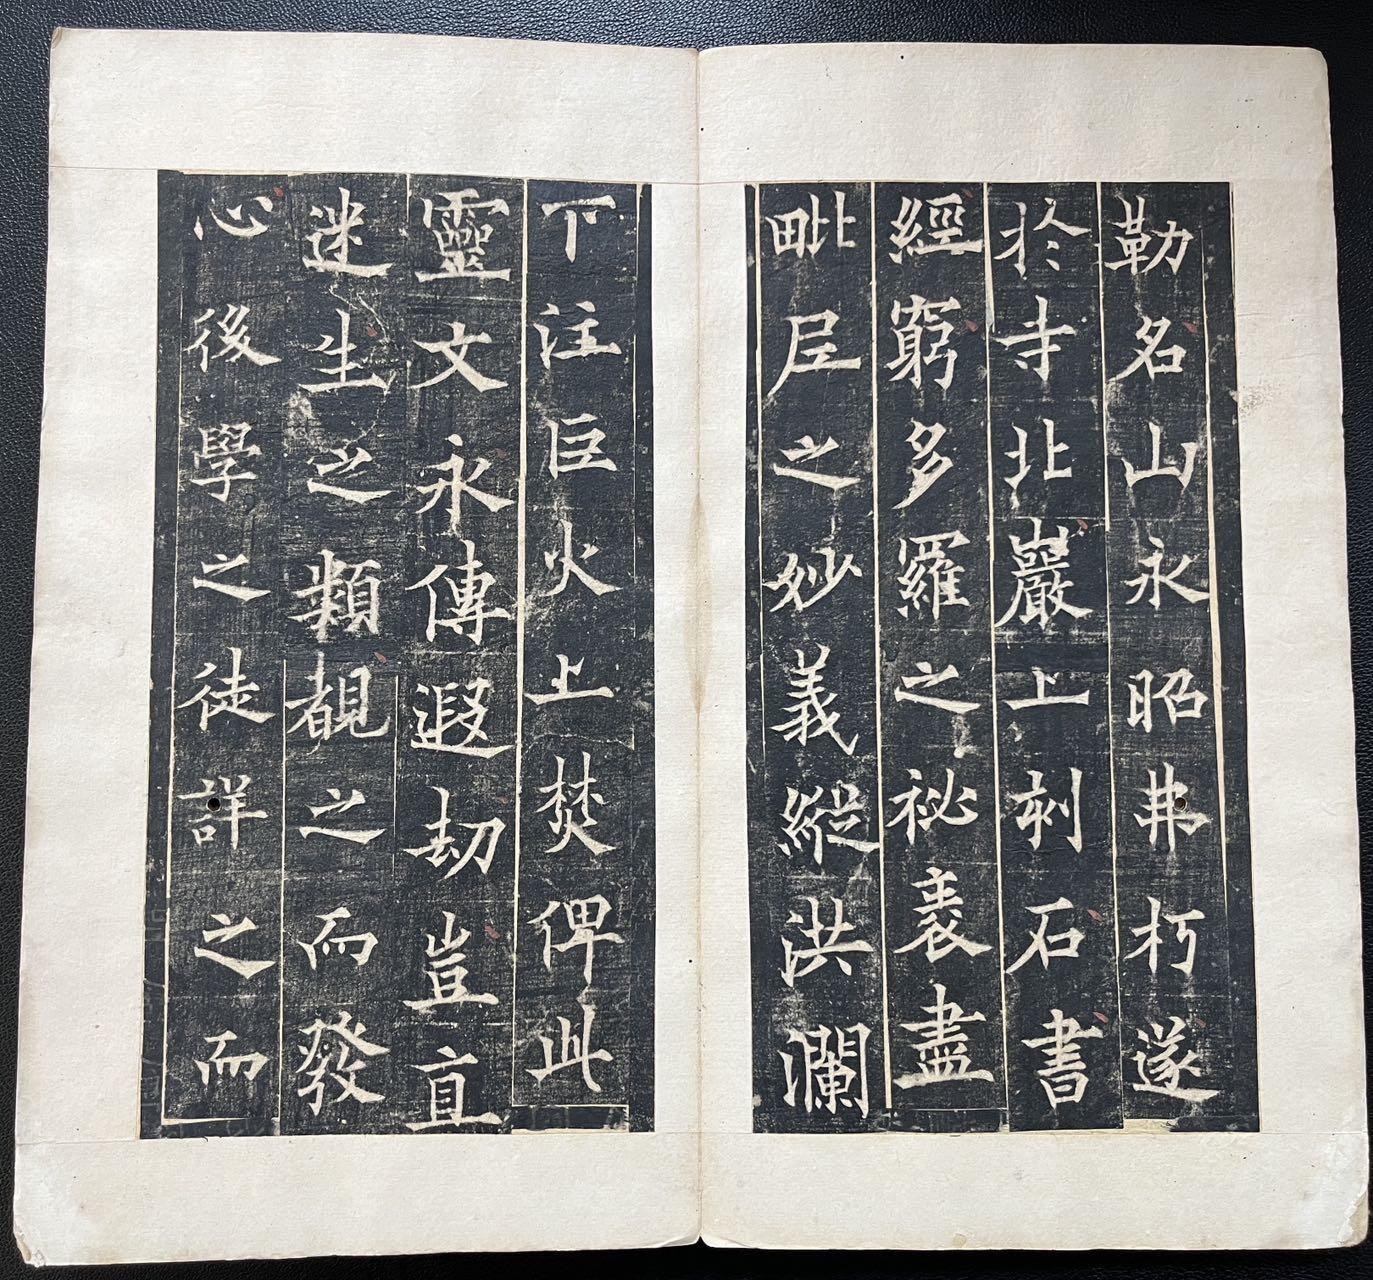 勒名山永昭弗朽遂
於寺北巖上刻石書
經窮多羅之祕袠盡
毗尼之妙義縱洪瀾
下注巨火上焚俾此
靈文永傳遐劫豈直
迷生之類覩之而發
心後學之徒詳之而